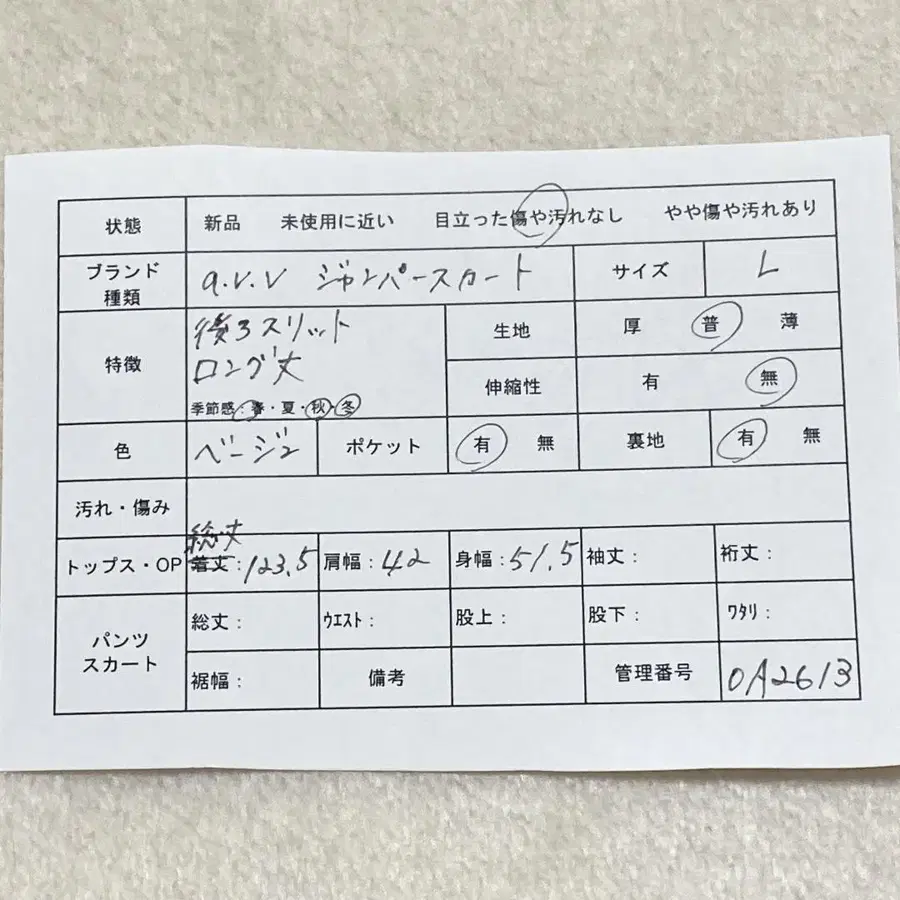 状態 新品 未使用に近い 目立った傷や汚れなし やや傷や汚れあり
ブランド種類 a.v.v ジャンパースカート サイズ L
特徴 後ろスリット
ロング丈
季節感:春・夏・秋・冬
生地 厚 普 薄
伸縮性 有 無
色 ベージュ ポケット 有 無 裏地 有 無
汚れ・傷み
総丈
トップス・OP 着丈:123.5 肩幅:42 身幅:51.5 袖丈: 裄丈:
パンツ
スカート
総丈: ウエスト: 股上: 股下: ワタリ:
裾幅: 備考 管理番号 0A2613